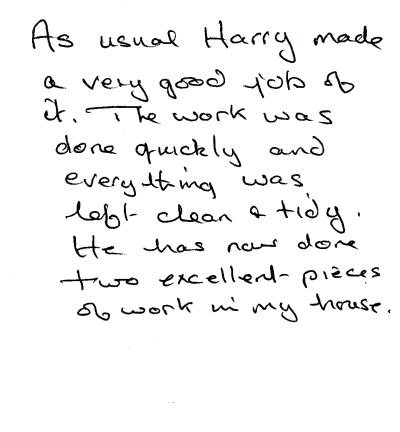 As usual Harry made
a very good job of
it. The work was
done quickly and
everything was
left clean & tidy.
He has now done
two excellent pieces
of work in my house.